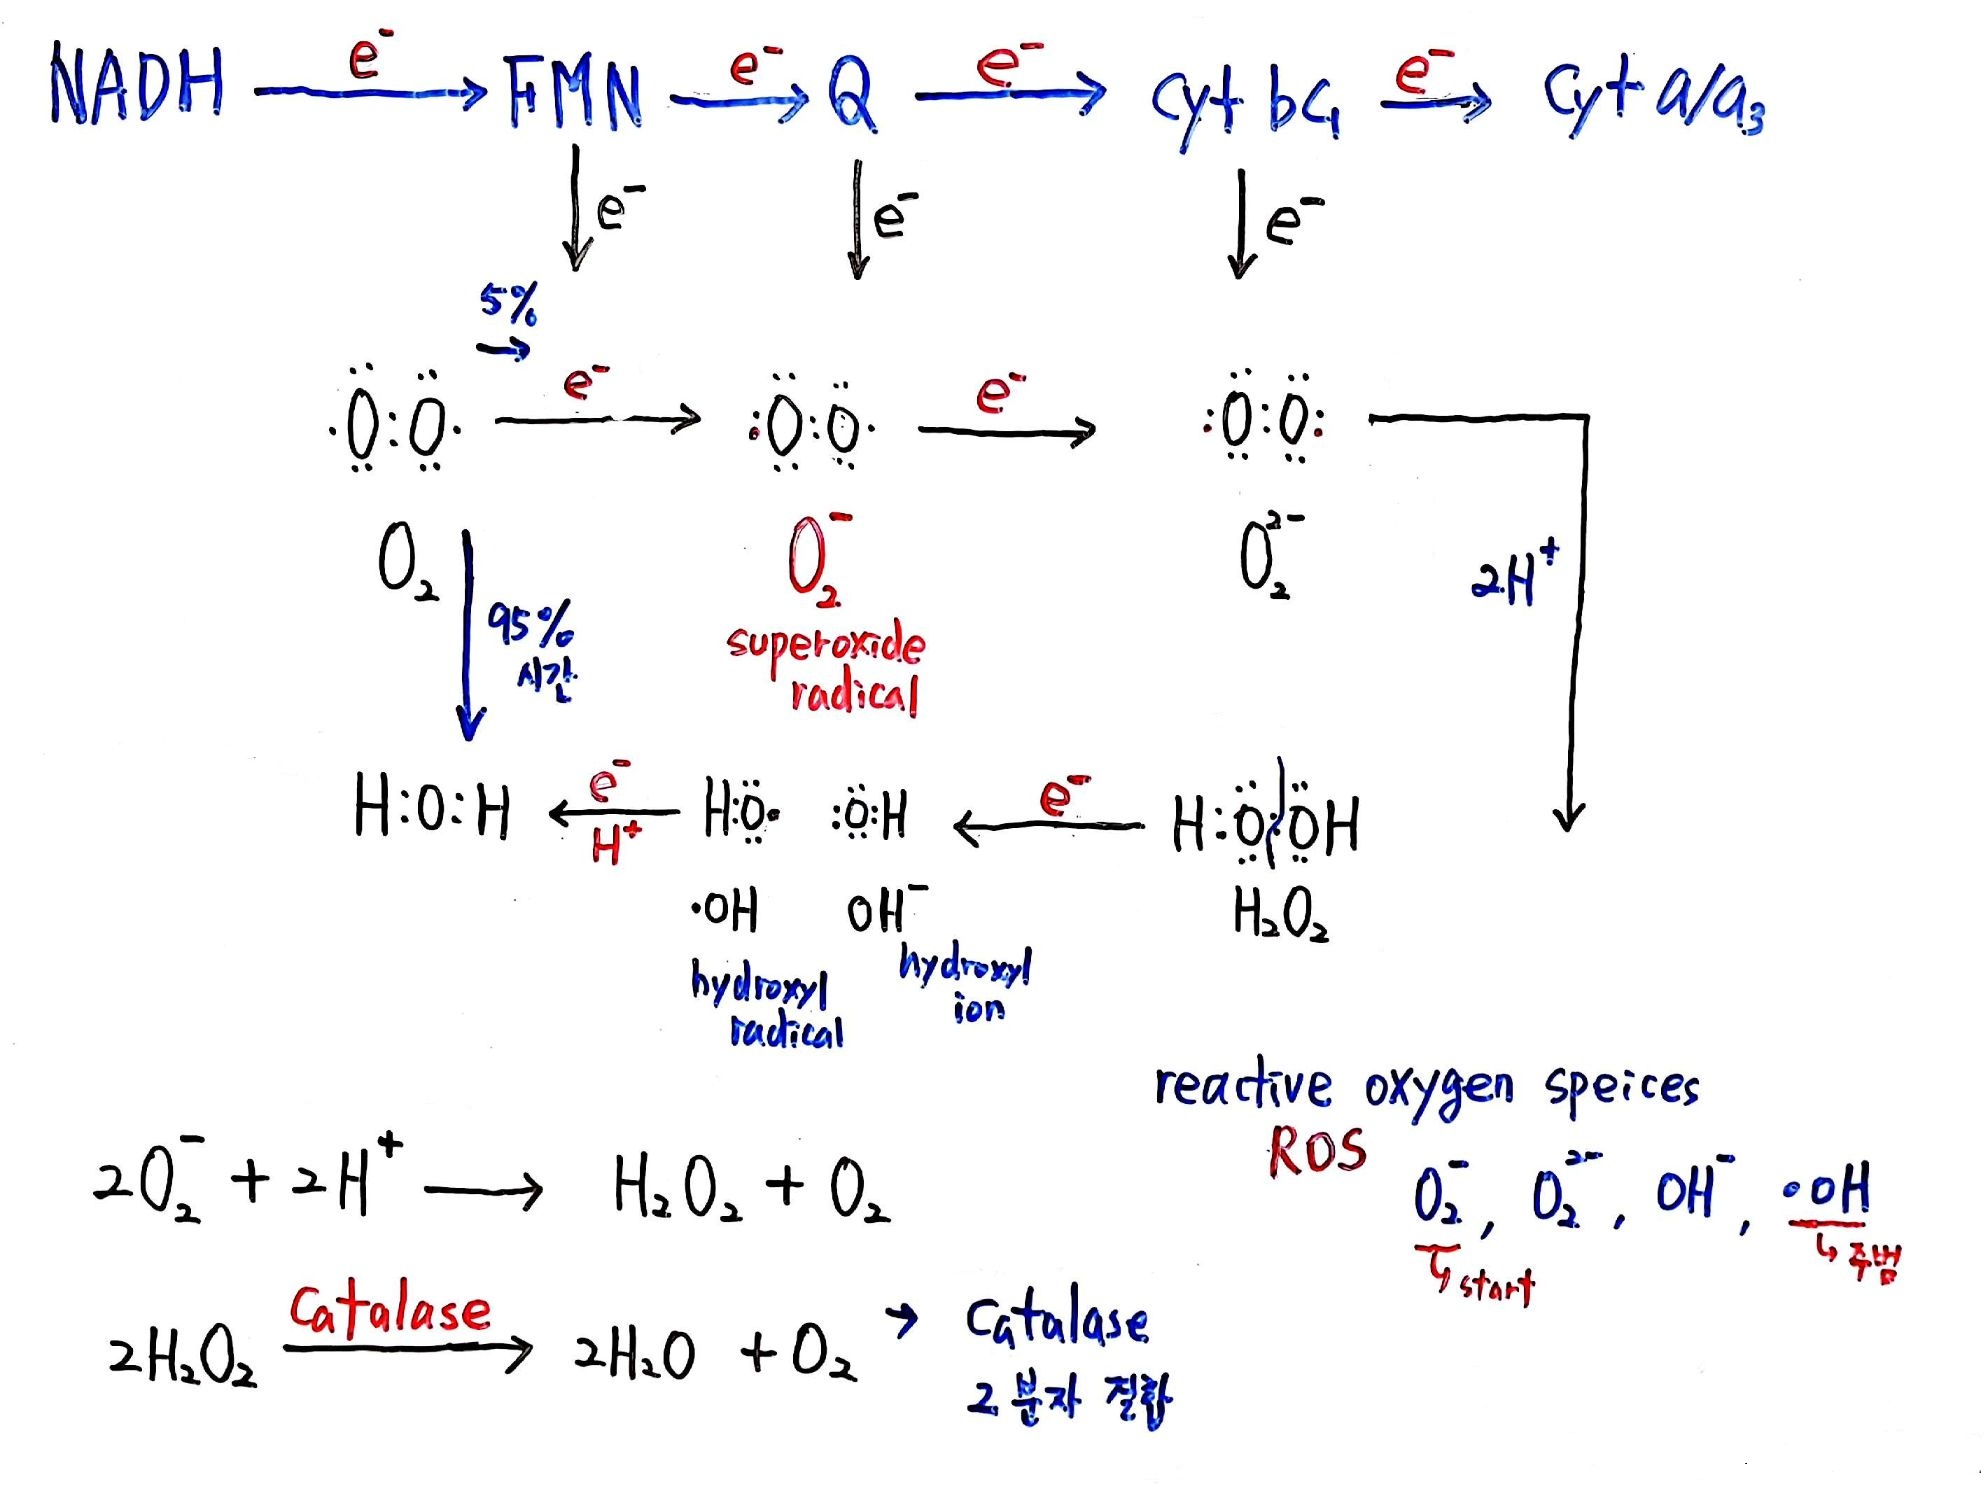 NADH e⁻ → FMN e⁻ → Q e⁻ → cyt bc₁ e⁻ → cyt a/a₃
↓ e⁻ ↓ e⁻ ↓ e⁻
5% →
·O:O· e⁻ → :O:O· e⁻ → :O:O:
O₂ O₂⁻ O₂²⁻ 2H⁺
95% superoxide
시간 radical
H:O:H ← e⁻ H⁺ H:O· :O:H ← e⁻ H:O:OH
·OH OH⁻ H₂O₂
hydroxyl radical
hydroxyl ion
reactive oxygen speices
ROS
O₂⁻, O₂²⁻, OH⁻, ·OH
↳ start ↳ 주범
2O₂⁻ + 2H⁺ → H₂O₂ + O₂
2H₂O₂ catalase → 2H₂O + O₂ → catalase
2분자 결합